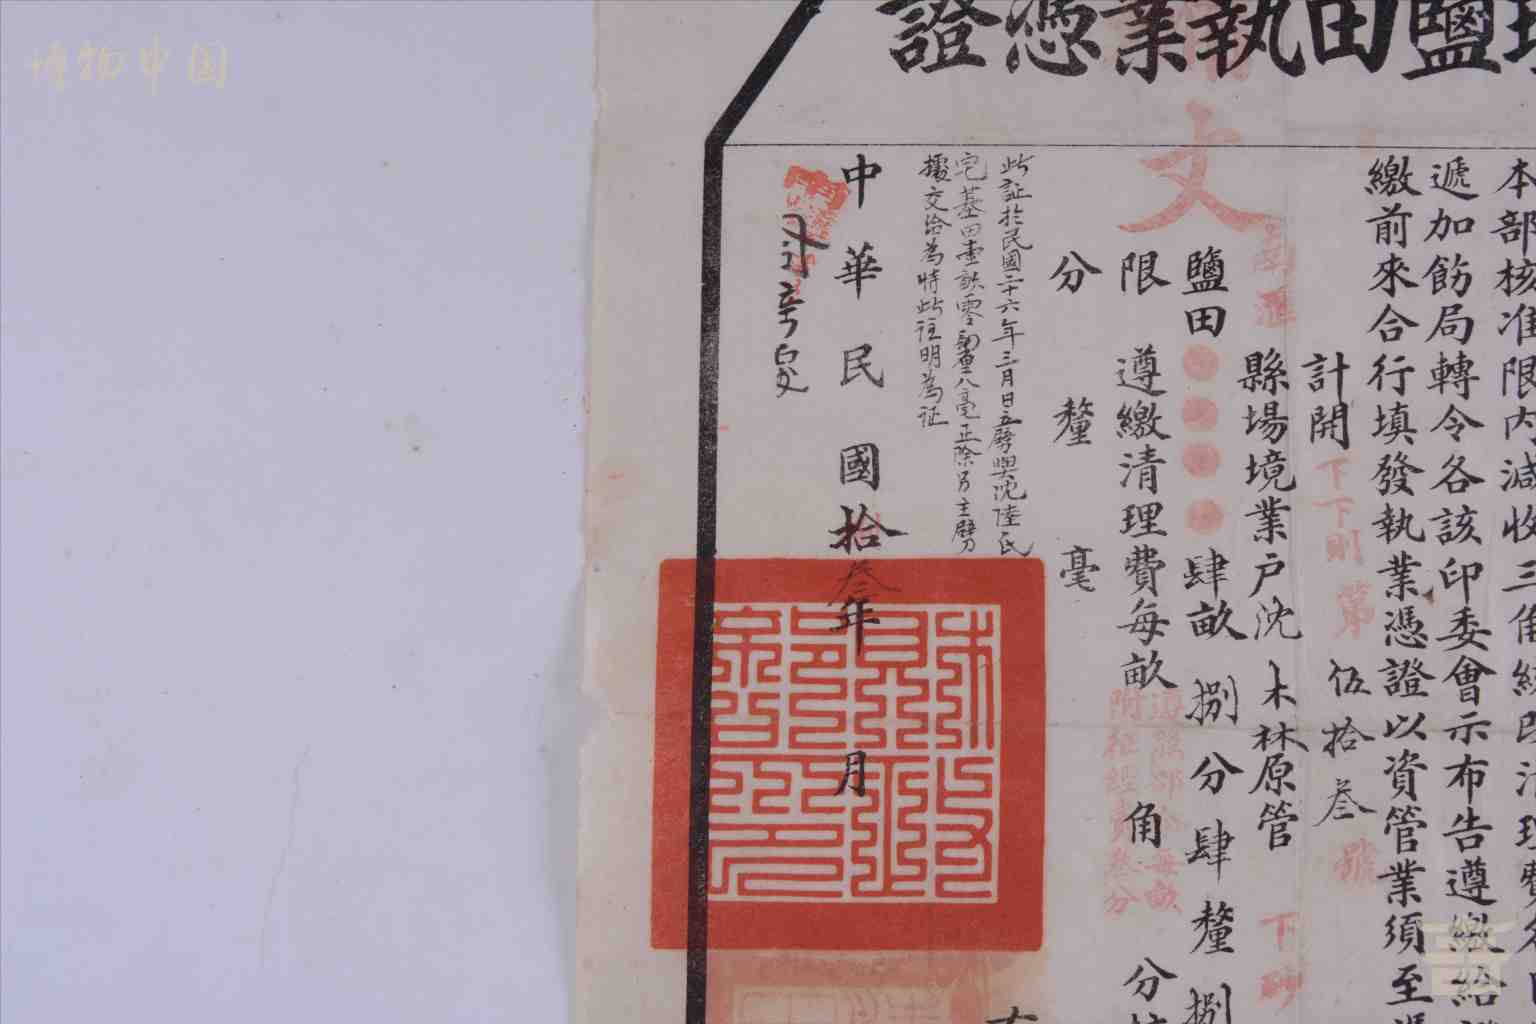 鹽田執業憑證
本部核准限內減收三角經民清理費
遞加飭局轉令各該印委會示布告遵繳給
繳前來合行填發執業憑證以資管業須至
計開
下下則第伍拾叁號
南滙縣場境業戶沈木林原管下砂
鹽田肆畝捌分肆釐捌
限遵繳清理費每畝角分
遵照部令每畝
附征經費叁分
分釐毫
此証於民國二十六年三月日立劈與沈陸氏
宅基田壹畝零八毫正除另立劈
據交給為特此註明為证
中華民國拾叁年月
博物中国